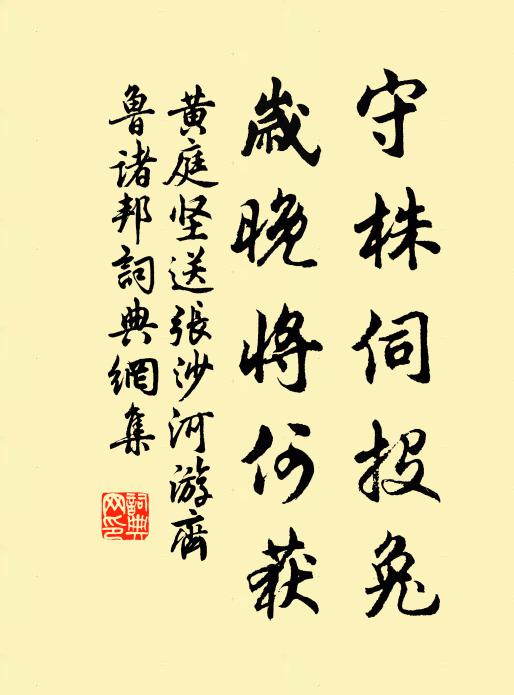 守株伺投兔
歲晚将何获
黄庭坚送張沙河游齊
魯诸邦詞典網集
詞典網印